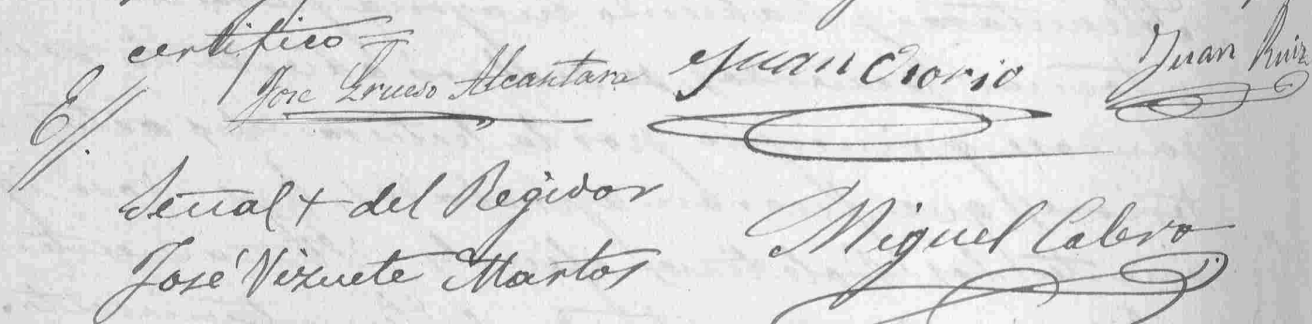 certifico =
E//. José Trueso Alcantara Juan Osorio Juan Ruiz
Señal + del Regidor
José Vizuete Martos Miguel Calero